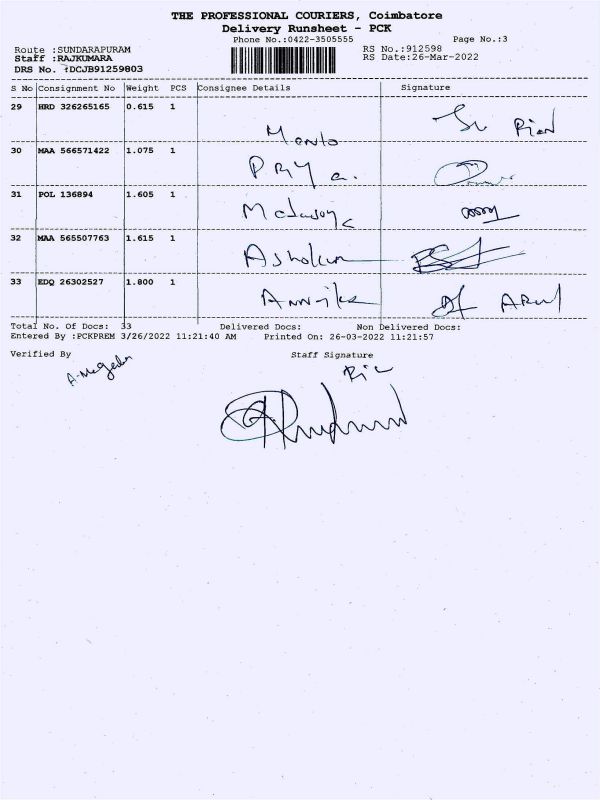 THE PROFESSIONAL COURIERS, Coimbatore
Delivery Runsheet - PCK
Phone No.:0422-3505555 Page No.:3
Route :SUNDARAPURAM RS No.:912598
Staff :RAJKUMARA RS Date:26-Mar-2022
DRS No. :DCJB91259803
S No Consignment No Weight PCS Consignee Details Signature
29 HRD 326265165 0.615 1
30 MAA 566571422 1.075 1
PRIYa.
31 POL 136894 1.605 1
32 MAA 565507763 1.615 1
Ashokan
33 EDQ 26302527 1.800 1
ARUL
Total No. Of Docs: 33 Delivered Docs: Non Delivered Docs:
Entered By :PCKPREM 3/26/2022 11:21:40 AM Printed On: 26-03-2022 11:21:57
Verified By Staff Signature